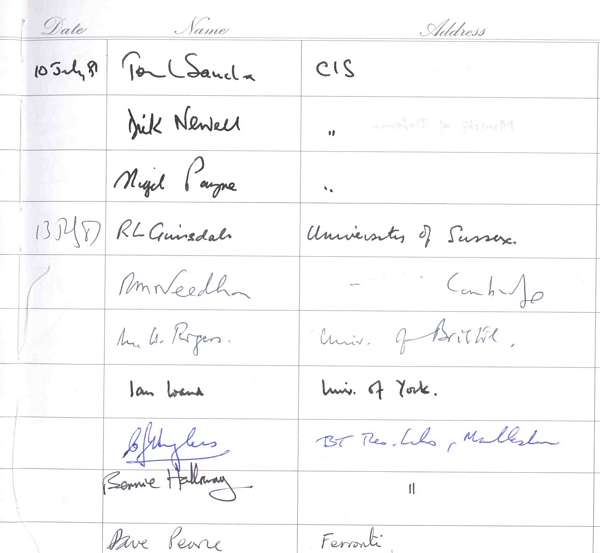 Date Name Address
10 July 81 Tom Sancha CIS
Dick Newell "
Nigel Payne "
13 July 81 RL Grimsdale University of Sussex.
RM Needham - Cambridge
M. W. Rogers. Univ. of Bristol.
Ian Wand Univ. of York.
BT Res. Labs, Martlesham
Bernie Holloway "
Dave Pearce Ferranti